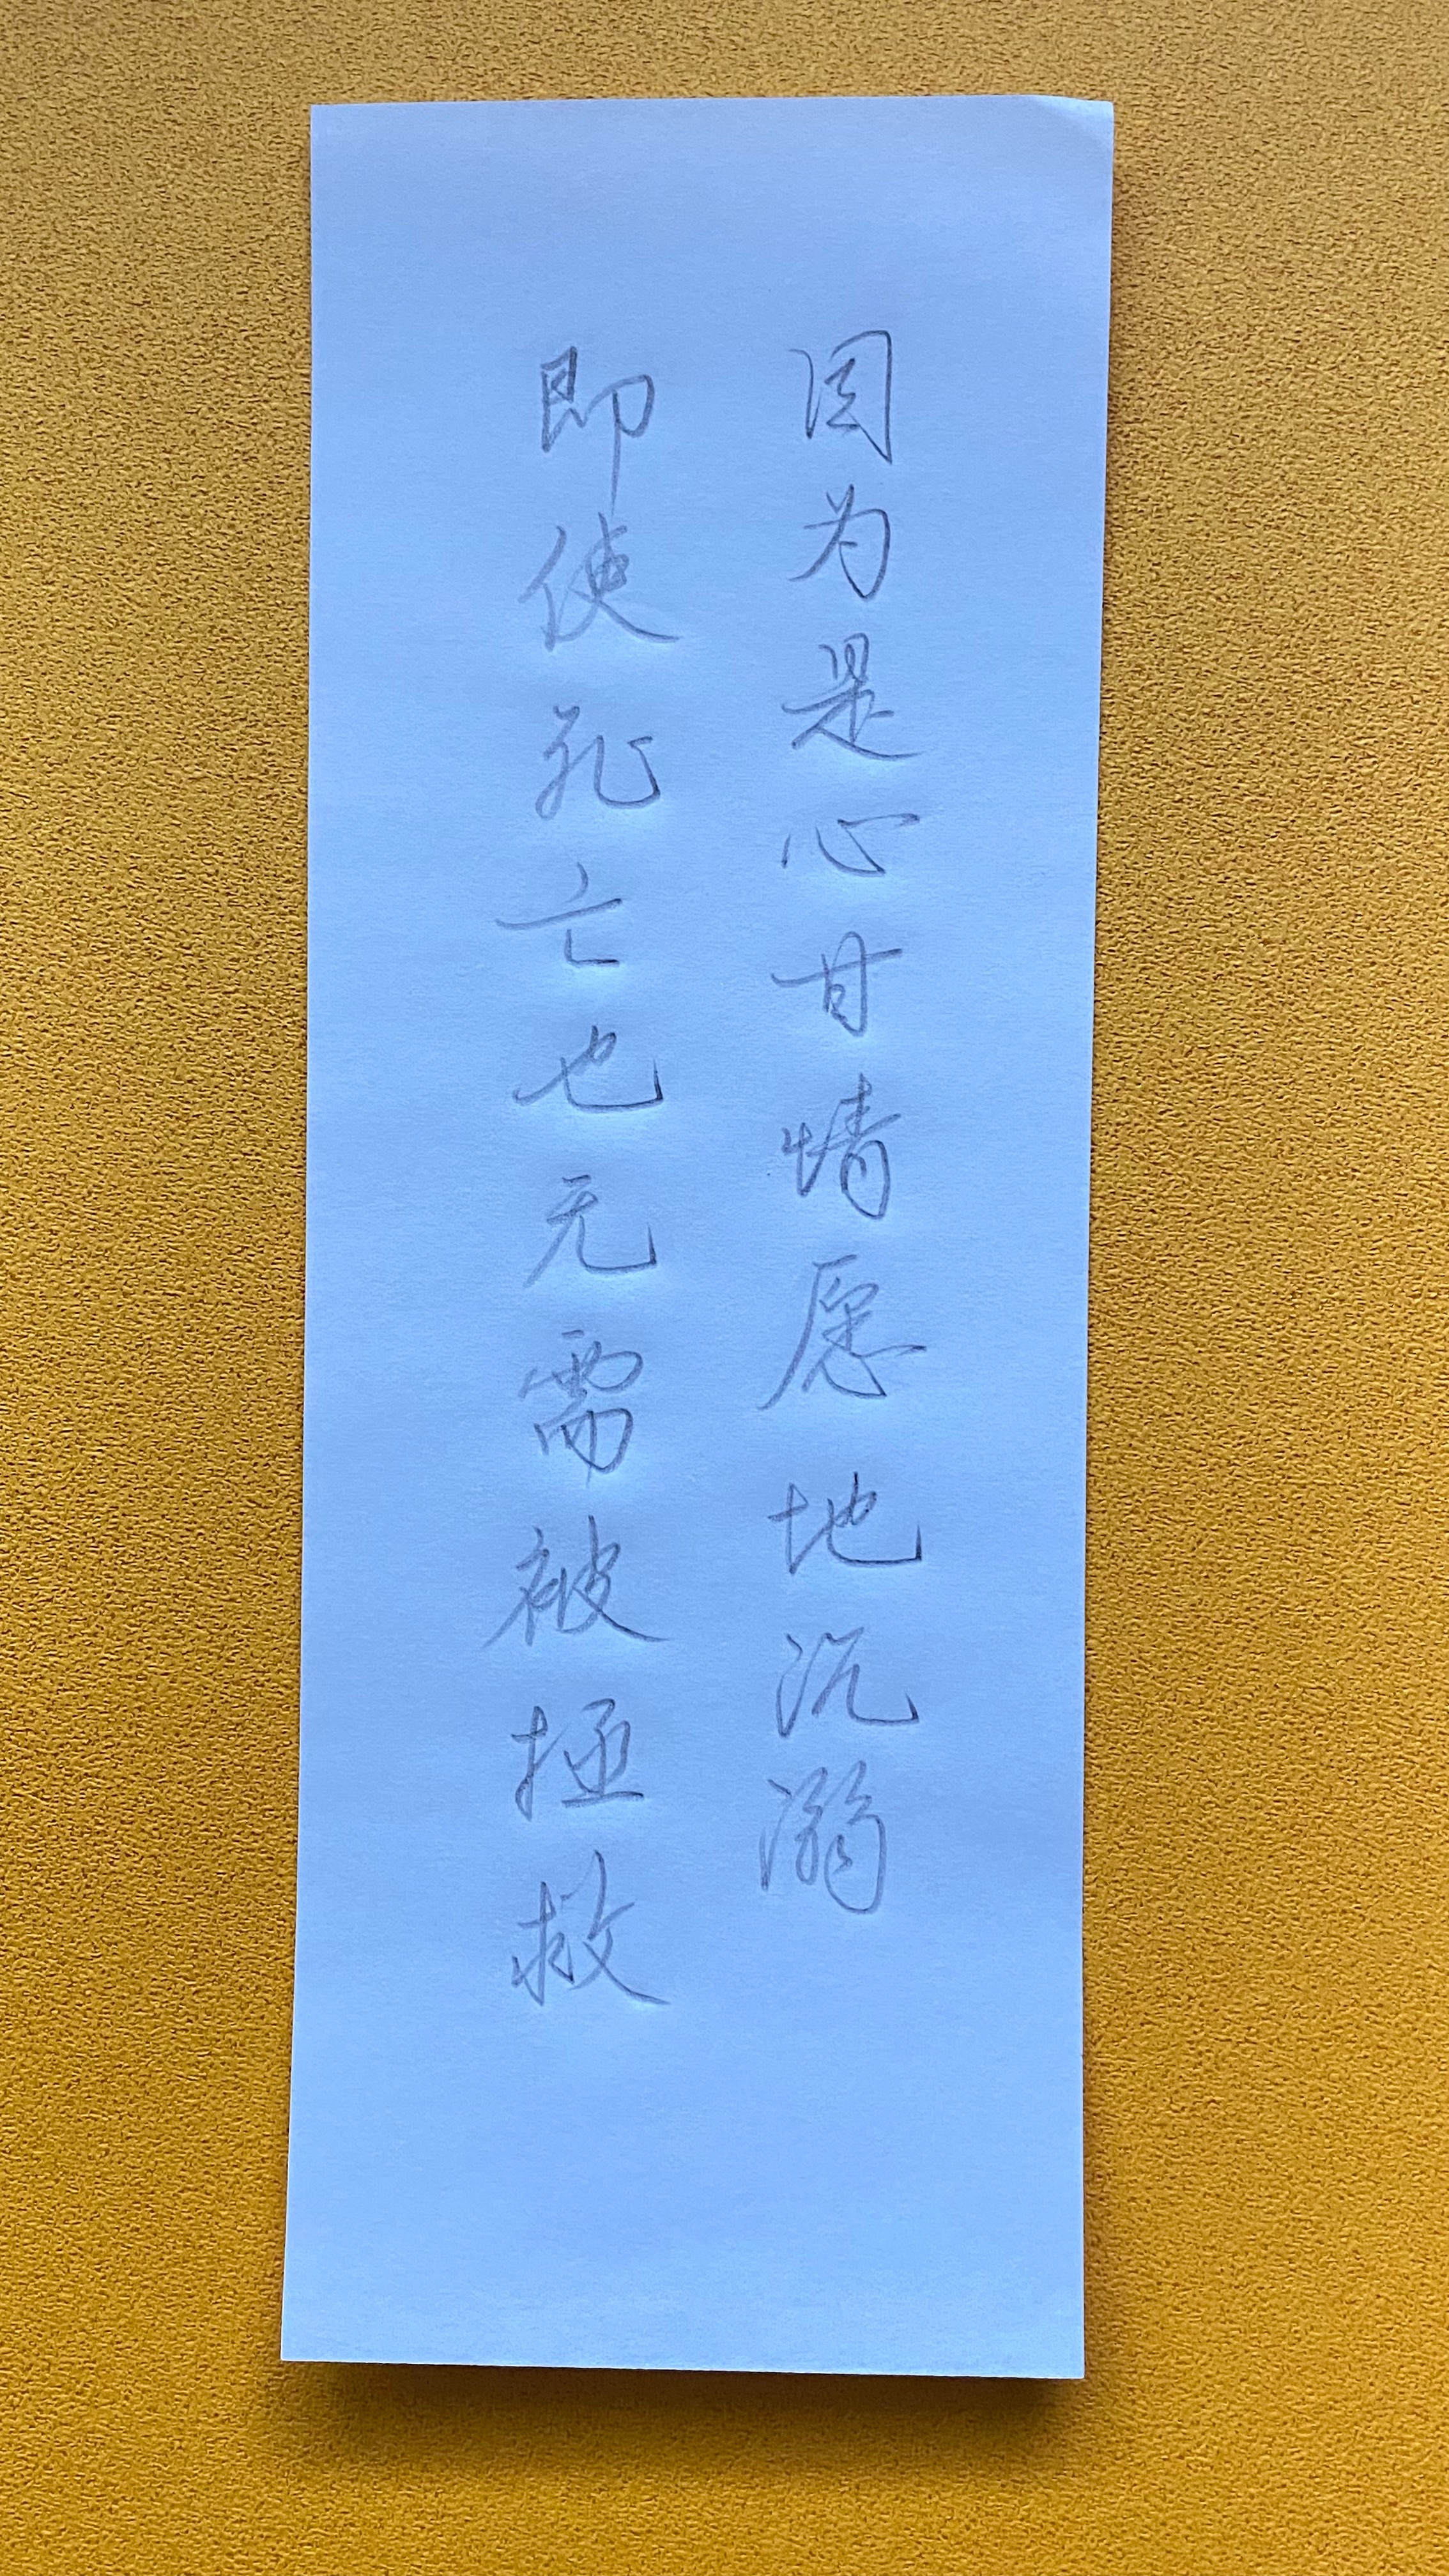 因为是心甘情愿地沉溺
即使死亡也无需被拯救